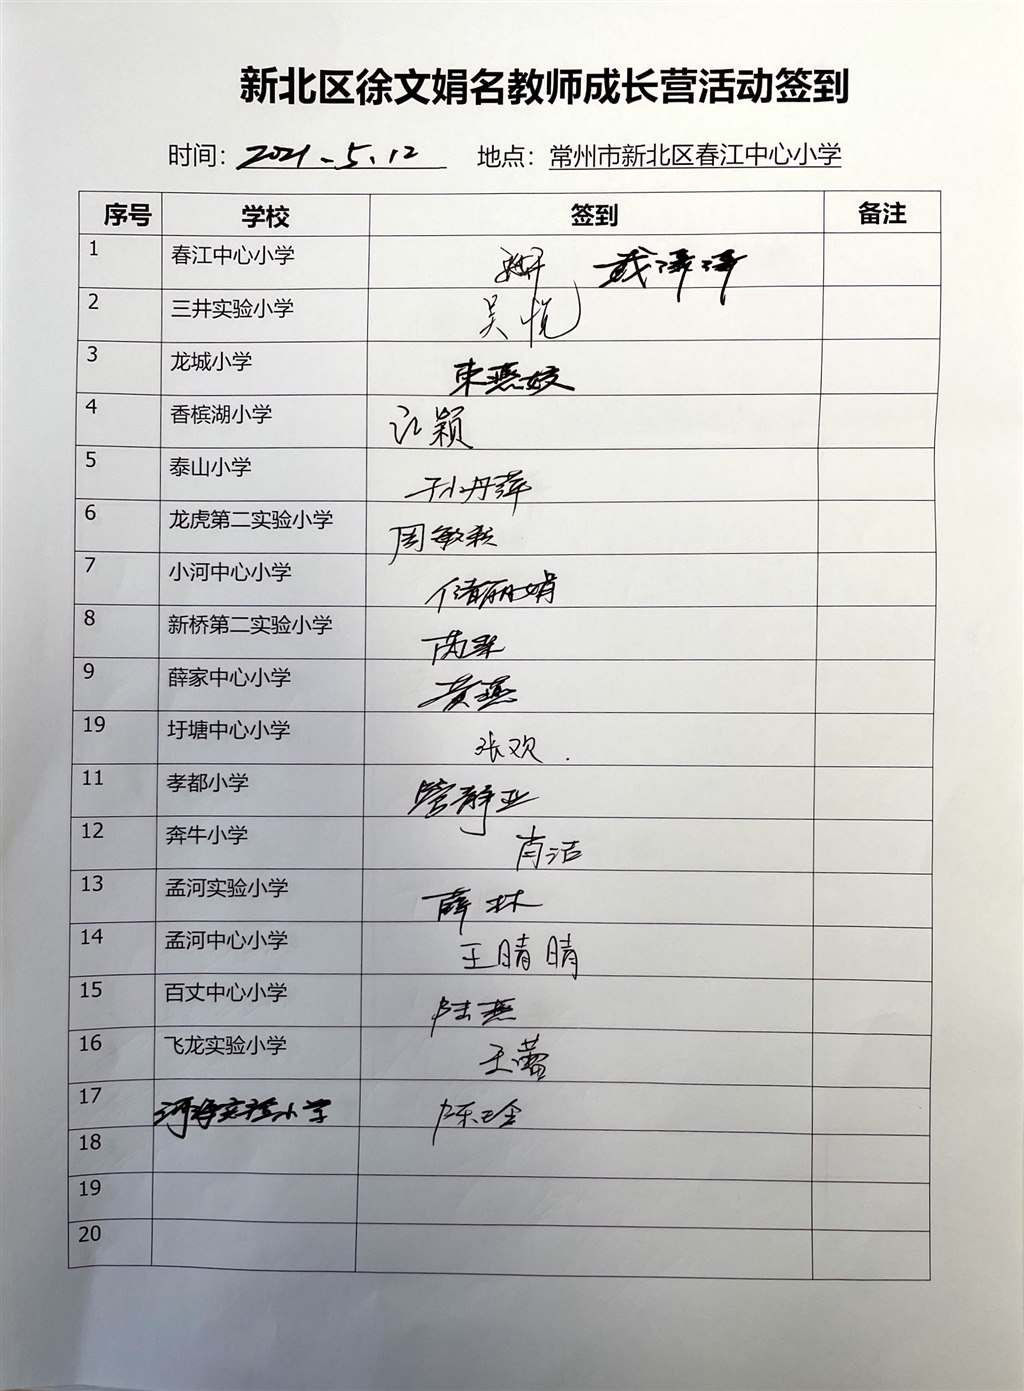 新北区徐文娟名教师成长营活动签到
时间：2021.5.12 地点：常州市新北区春江中心小学
序号 学校 签到 备注
1 春江中心小学
2 三井实验小学 吴悦
3 龙城小学 束燕姣
4 香槟湖小学 颖
5 泰山小学 孙丹萍
6 龙虎第二实验小学 周敏
7 小河中心小学 丽娟
8 新桥第二实验小学 芮
9 薛家中心小学 黄燕
19 圩塘中心小学 张欢.
11 孝都小学 管静亚
12 奔牛小学 肖洁
13 孟河实验小学 薛林
14 孟河中心小学 王晴晴
15 百丈中心小学 陆燕
16 飞龙实验小学 王蕾
17 河海实验小学 陈
18
19
20